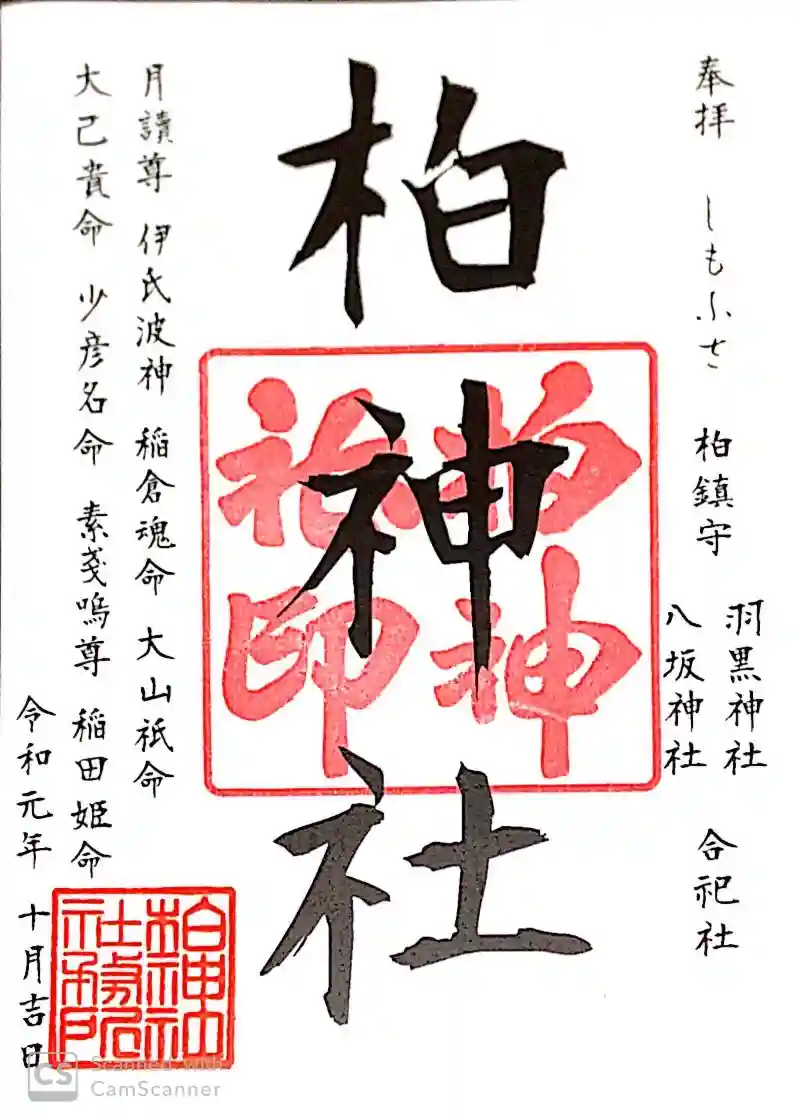 奉拝 しもふさ 柏鎮守
羽黒神社
八坂神社
合祀社
柏神社
柏神社印
月讀尊 伊氐波神 稲倉魂命 大山祇命
大己貴命 少彦名命 素戔嗚尊 稲田姫命
令和元年 十月吉日
柏神社社務所印
CS Scanned with
CamScanner